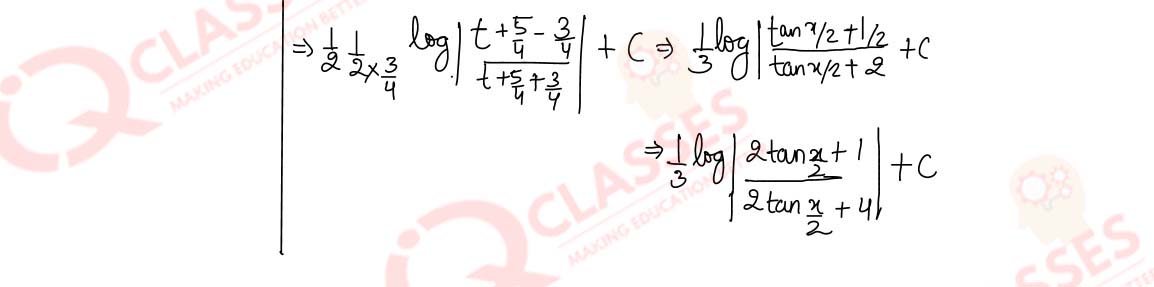 ⇒ 1/2 1/(2×3/4) log|(t+5/4-3/4)/(t+5/4+3/4)| + C ⇒ 1/3 log|(tan x/2+1/2)/(tan x/2+2) + C
⇒ 1/3 log|(2tan x/2+1)/(2tan x/2+4)| + C
Q CLASSES
MAKING EDUCATION BETTER
Q CLASSES
MAKING EDUCATION
SSES